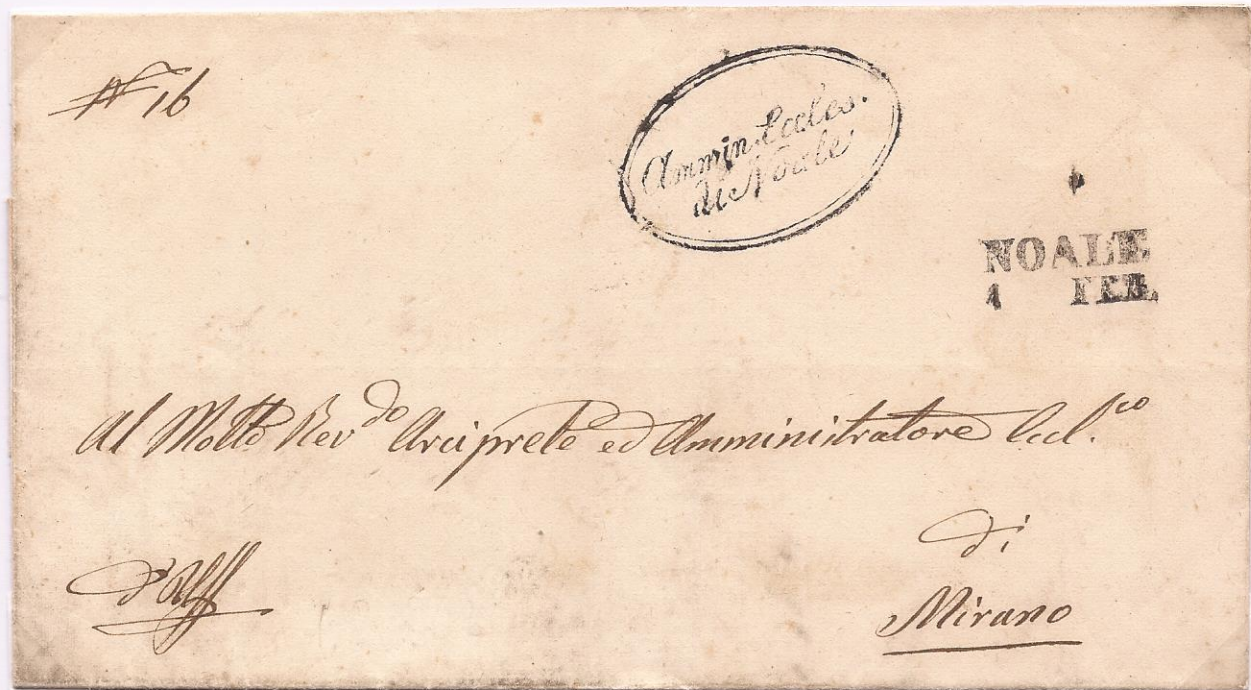 N° 16
Ammin. Eccles.
di Noale
NOALE
1 FEB.
Al Molto Rev.do Arciprete ed Amministratore Eccl.co
di
Mirano
d'Uff